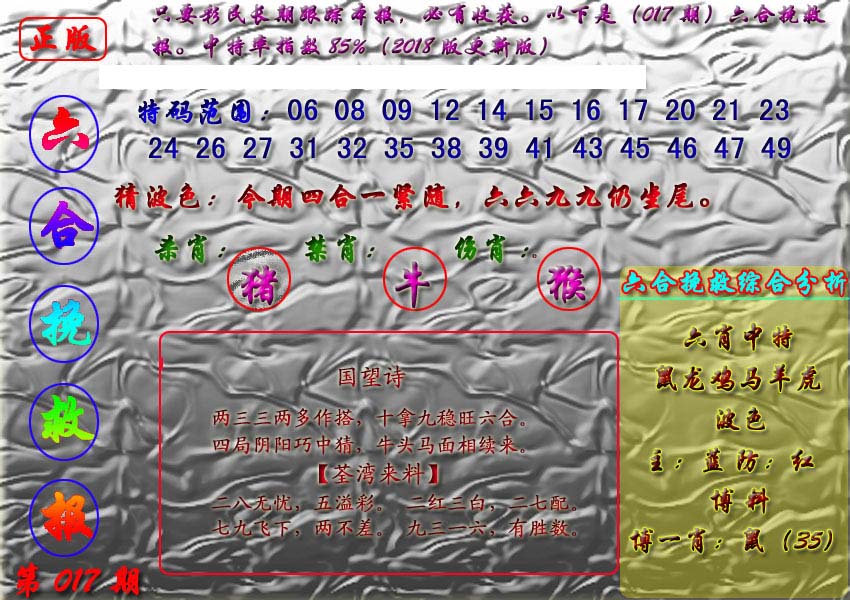 正版
只要彩民长期跟踪本报，必有收获。以下是（017期）六合挽救
报。中特率指数85%（2018版更新版）
六合挽救报
第017期
特码范围：06 08 09 12 14 15 16 17 20 21 23
24 26 27 31 32 35 38 39 41 43 45 46 47 49
猜波色：今期四合一紧随，六六九九仍坐尾。
杀肖：猪 禁肖：牛 伤肖：猴
国望诗
两三三两多作搭，十拿九稳旺六合。
四局阴阳巧中猜，牛头马面相续来。
【荃湾来料】
二八无忧，五溢彩。 二红三白，二七配。
七九飞下，两不差。 九三一六，有胜数。
六合挽救综合分析
六肖中特
鼠龙鸡马羊虎
波色
主：蓝防：红
博料
博一肖：鼠（35）